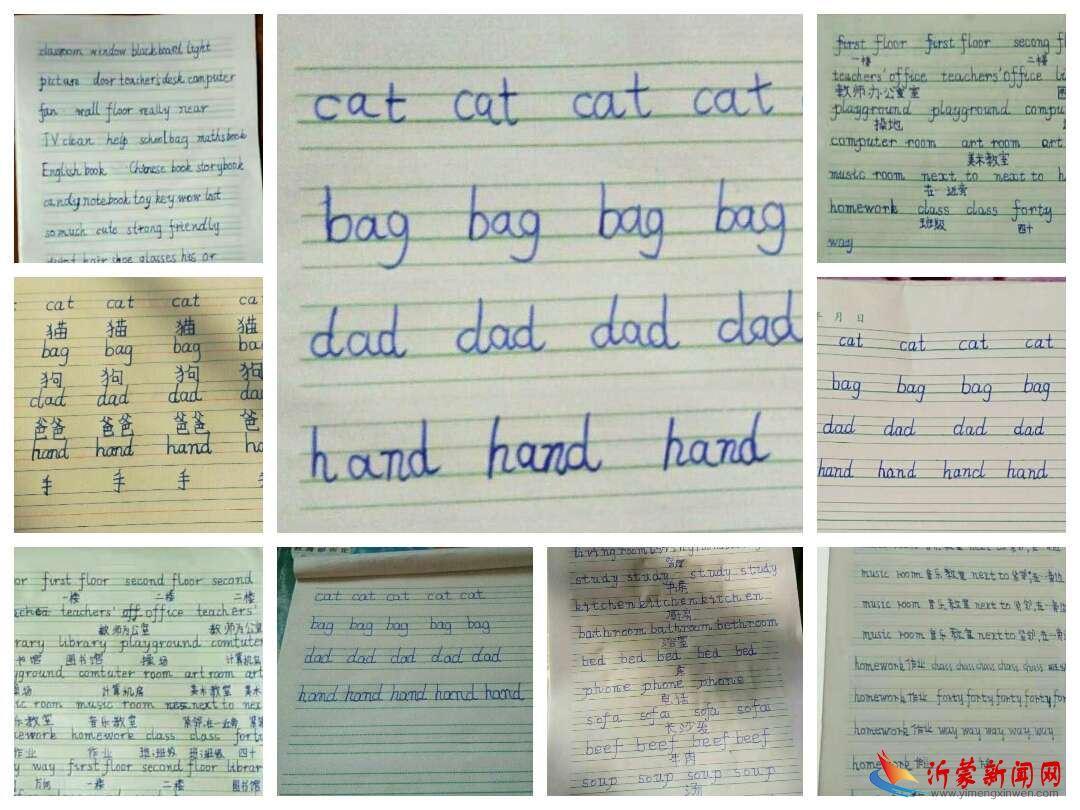 classroom window blackboard light
picture door teacher's desk computer
fan wall floor really near
TV clean help schoolbag maths book
English book Chinese book storybook
candy notebook toy key wow lost
so much cute strong friendly
hair shoe glasses his or
cat cat cat cat
bag bag bag bag
dad dad dad dad
hand hand hand
first floor first floor second fl
一楼 二楼
teachers' office teachers' office li
教师办公室室
playground playground compu
操地
computer room art room art
美术教室
music room next to next to h
在一边旁
homework class class forty
班级 四十
way
cat cat cat ca
猫 猫 猫 猫
bag bag bag ba
狗 狗 狗 狗
dad dad dad da
爸爸 爸爸 爸爸 爸
hand hand hand ha
手 手 手
年 月 日
cat cat cat cat
bag bag bag bag
dad dad dad dad
hand hand hand hand
or first floor second floor second
一楼 二楼 二楼
teachers' off office teachers'
教师办公室 教师办公室
rary library playground comtuter
书馆 图书馆 操场 计算机
yground comtuter room art room art
场 计算机房 美术教室 美术
ic room music room next to nex
乐教室 音乐教室
ework homework class class fort
作业 作业 班:班级 班:班级 四十
y way first floor second floor librar
方向 一楼 二楼 图书馆
cat cat cat cat cat
bag bag bag bag bag
dad dad dad dad dad
hand hand hand hand hand
living room
study study study study
书房
kitchen kitchen kitchen
厨房
bathroom bathroom bethroom
浴室
bed bed bed bed bed
床
phone phone phone
电话
sofa sofa sofa sofa
长沙发
beef beef beef beef
牛肉
soup soup soup soup
汤
music room 音乐教室 next to
music room 音乐教室 next to
music room 音乐教室 next to
homework 作业 class class class class
homework 作业 forty forty forty forty
homework 作业 way way way way way
homework 作业
沂蒙新闻网
www.yimengxinwen.com